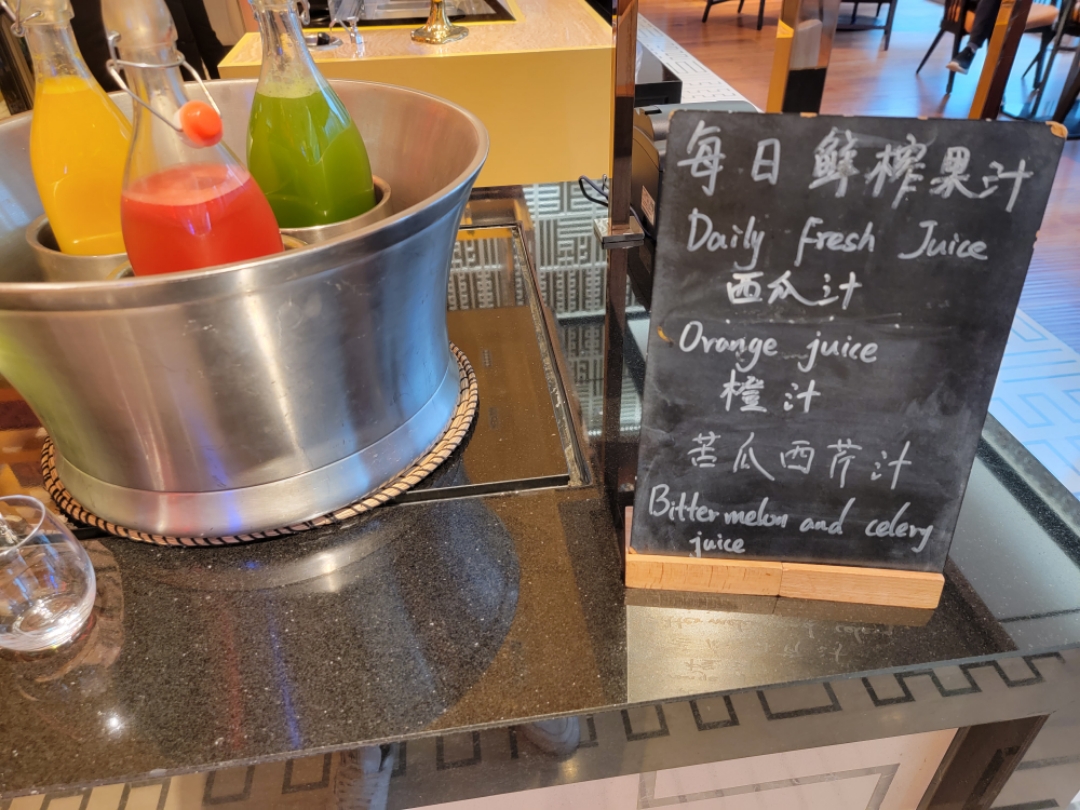 每日鲜榨果汁
Daily Fresh Juice
西瓜汁
Orange juice
橙汁
苦瓜西芹汁
Bitter melon and celery
juice